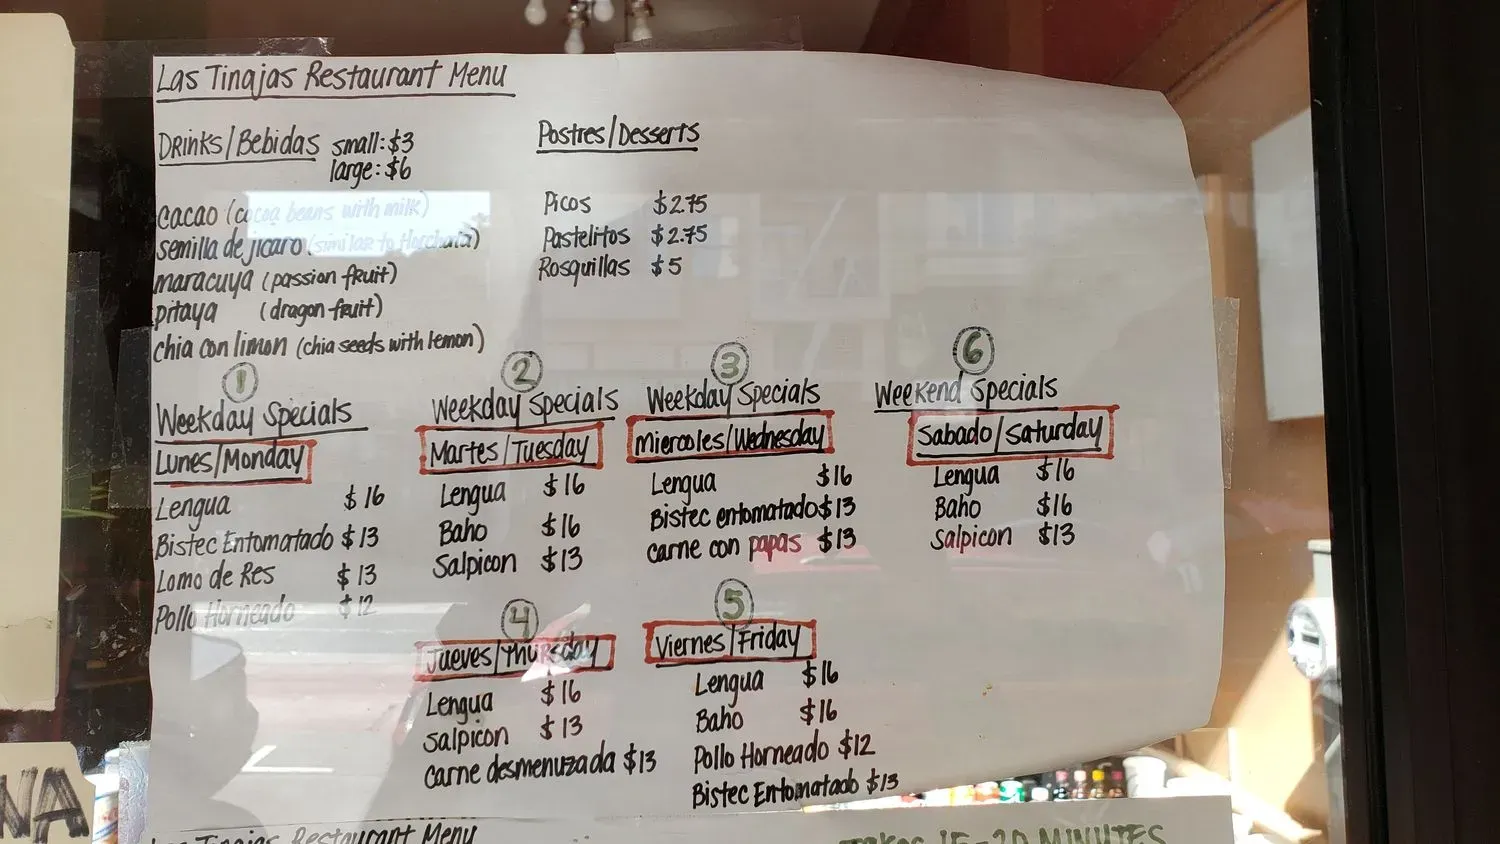 Las Tinajas Restaurant Menu
Drinks/Bebidas small: $3
large: $6
cacao (cocoa beans with milk)
semilla de jicaro (similar to Horchata)
maracuya (passion fruit)
pitaya (dragon fruit)
chia con limon (chia seeds with lemon)
Postres/Desserts
Picos $2.75
Pastelitos $2.75
Rosquillas $5
1
Weekday Specials
Lunes/Monday
Lengua $16
Bistec Entomatado $13
Lomo de Res $13
Pollo Horneado $12
2
Weekday Specials
Martes/Tuesday
Lengua $16
Baho $16
Salpicon $13
3
Weekday Specials
Miercoles/Wednesday
Lengua $16
Bistec entomatado $13
carne con papas $13
6
Weekend Specials
Sabado/Saturday
Lengua $16
Baho $16
Salpicon $13
4
Jueves/Thursday
Lengua $16
Salpicon $13
carne desmenuzada $13
5
Viernes/Friday
Lengua $16
Baho $16
Pollo Horneado $12
Bistec Entomatado $13
NA
Las Tinajas Restaurant Menu
TAKES 15-20 MINUTES